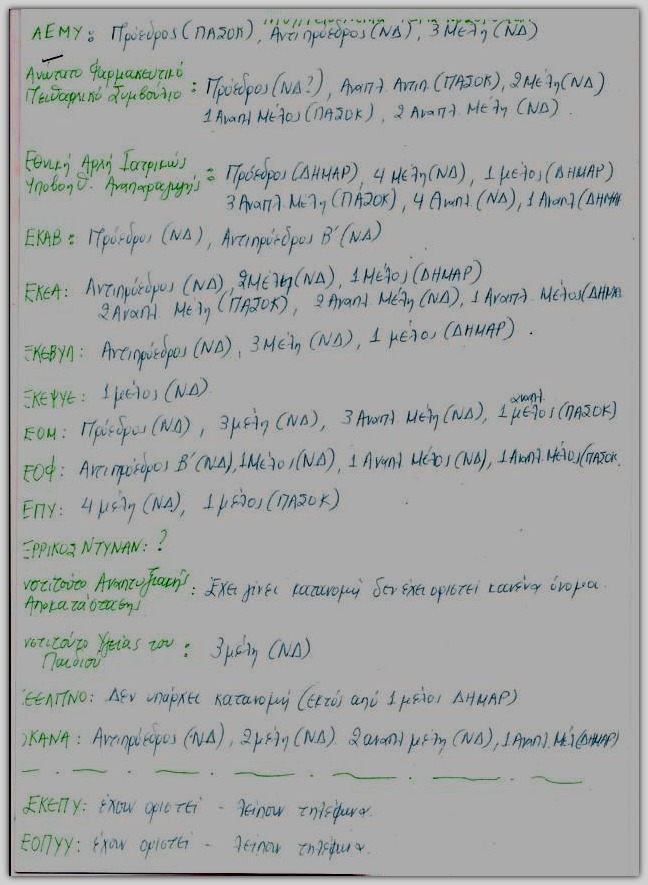 ΑΕΜΥ: Πρόεδρος (ΠΑΣΟΚ), Αντιπρόεδρος (ΝΔ), 3 Μέλη (ΝΔ)
Ανώτατο Φαρμακευτικό
Πειθαρχικό Συμβούλιο: Πρόεδρος (ΝΔ?), Αναπλ. Αντιπ. (ΠΑΣΟΚ), 2 Μέλη (ΝΔ)
1 Αναπλ Μέλος (ΠΑΣΟΚ), 2 Αναπλ. Μέλη (ΝΔ).
Εθνική Αρχή Ιατρικώς
Υποβοηθ. Αναπαραγωγής: Πρόεδρος (ΔΗΜΑΡ), 4 μέλη (ΝΔ), 1 μέλος (ΔΗΜΑΡ)
3 Αναπλ Μέλη (ΠΑΣΟΚ), 4 Αναπλ (ΝΔ), 1 Αναπλ (ΔΗΜΑΡ
ΕΚΑΒ: Πρόεδρος (ΝΔ), Αντιπρόεδρος Β' (ΝΔ)
ΕΚΕΑ: Αντιπρόεδρος (ΝΔ), 2 Μέλη (ΝΔ), 1 Μέλος (ΔΗΜΑΡ)
2 Αναπλ Μέλη (ΠΑΣΟΚ), 2 Αναπλ Μέλη (ΝΔ), 1 Αναπλ. Μέλος (ΔΗΜΑ
ΕΚΕΒΥΛ: Αντιπρόεδρος (ΝΔ), 3 Μέλη (ΝΔ), 1 μέλος (ΔΗΜΑΡ).
ΕΚΕΨΥΕ: 1 μέλος (ΝΔ)
ΕΟΜ: Πρόεδρος (ΝΔ), 3 μέλη (ΝΔ), 3 Αναπλ. Μέλη (ΝΔ), 1 αναπλ. μέλος (ΠΑΣΟΚ)
ΕΟΦ: Αντιπρόεδρος Β' (ΝΔ), 1 Μέλος (ΝΔ), 1 Αναπλ Μέλος (ΝΔ), 1 Αναπλ. Μέλος (ΠΑΣΟΚ.
ΕΠΥ: 4 μέλη (ΝΔ), 1 μέλος (ΠΑΣΟΚ)
ΕΡΡΙΚΟΣ ΝΤΥΝΑΝ: ?
νστιτούτο Αναπτυξιακής
Αποκατάστασης: Έχει γίνει κατανομή δεν έχει οριστεί κανένα όνομα.
νστιτούτο Υγείας του
Παιδιού: 3 μέλη (ΝΔ)
ΚΕΕΛΠΝΟ: Δεν υπάρχει κατανομή (εκτός από 1 μέλος ΔΗΜΑΡ)
ΟΚΑΝΑ: Αντιπρόεδρος (ΝΔ), 2 μέλη (ΝΔ) 2 αναπλ μέλη (ΝΔ), 1 Αναπλ. Μέλ (ΔΗΜΑΡ)
ΕΚΕΠΥ: έχουν οριστεί - λείπουν τηλέφωνα.
ΕΟΠΥΥ: έχουν οριστεί - λείπουν τηλέφωνα.